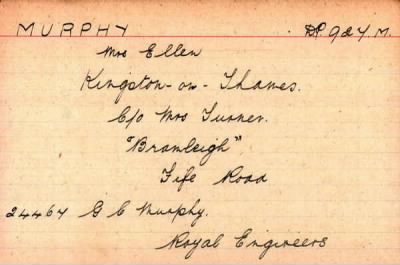 MURPHY DP 924.M.
Mrs Ellen
Kingston-on-Thames.
C/o Mrs Turner.
"Bramleigh"
Fife Road
24464 G C Murphy.
Royal Engineers